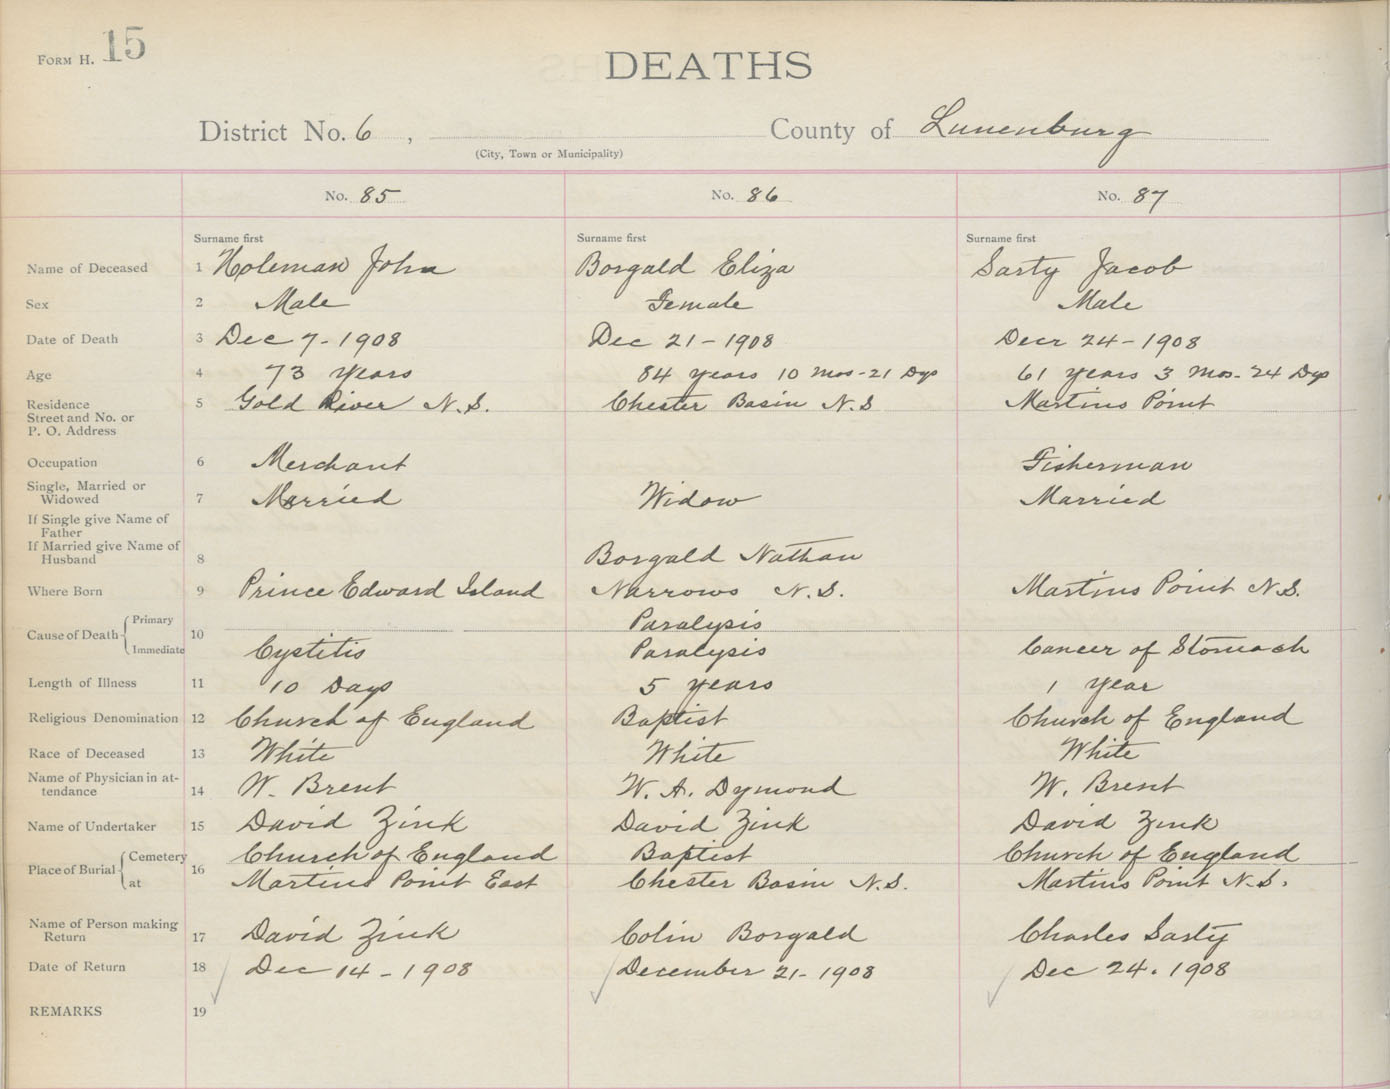 FORM H. 15
DEATHS
District No. 6, County of Lunenburg
(City, Town or Municipality)
No. 85 No. 86 No. 87
Surname first Surname first Surname first
Name of Deceased 1 Holeman John Borgald Eliza Sarty Jacob
Sex 2 Male Female Male
Date of Death 3 Dec 7 - 1908 Dec 21 - 1908 Decr 24 - 1908
Age 4 73 Years 84 years 10 Mos - 21 Dys 61 years 3 Mos - 24 Dys
Residence 5 Gold River N.S. Chester Basin N.S Martins Point
Street and No. or
P. O. Address
Occupation 6 Merchant Fisherman
Single, Married or
Widowed 7 Married Widow Married
If Single give Name of
Father
If Married give Name of
Husband 8 Borgald Nathan
Where Born 9 Prince Edward Island Narrows N.S. Martins Point N.S.
Primary Paralysis
Cause of Death 10
Immediate Cystitis Paralysis Cancer of Stomach
Length of Illness 11 10 Days 5 years 1 Year
Religious Denomination 12 Church of England Baptist Church of England
Race of Deceased 13 White White White
Name of Physician in at-
tendance 14 W. Brent W. A. Dymond W. Brent
Name of Undertaker 15 David Zink David Zink David Zink
Cemetery Church of England Baptist Church of England
Place of Burial 16
at Martins Point East Chester Basin N.S. Martins Point N.S.
Name of Person making
Return 17 David Zink Colin Borgald Charles Sarty
Date of Return 18 Dec 14 - 1908 December 21 - 1908 Dec 24. 1908
REMARKS 19